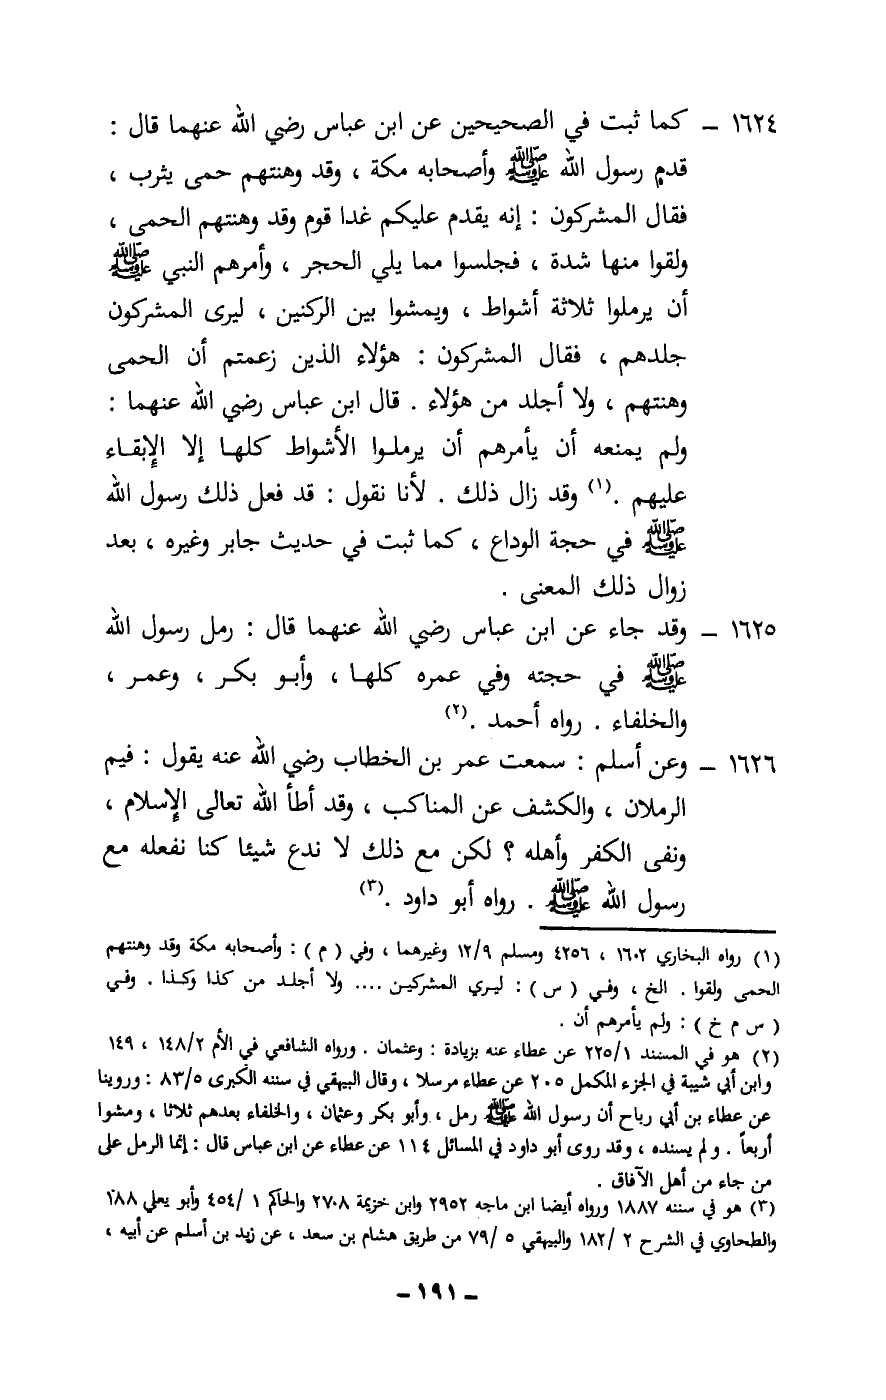 ١٦٢٤ – كما ثبت في الصحيحين عن ابن عباس رضي الله عنهما قال :
قدم رسول الله ﷺ وأصحابه مكة ، وقد وهنتهم حمى يثرب ،
فقال المشركون : إنه يقدم عليكم غدا قوم وقد وهنتهم الحمى ،
ولقوا منها شدة ، فجلسوا مما يلي الحجر ، وأمرهم النبي ﷺ
أن يرملوا ثلاثة أشواط ، ويمشوا بين الركنين ، ليرى المشركون
جلدهم ، فقال المشركون : هؤلاء الذين زعمتم أن الحمى
وهنتهم ، ولا أجلد من هؤلاء . قال ابن عباس رضي الله عنهما :
ولم يمنعه أن يأمرهم أن يرملوا الأشواط كلها إلا الإبقاء
عليهم .(١) وقد زال ذلك . لأنا نقول : قد فعل ذلك رسول الله
ﷺ في حجة الوداع ، كما ثبت في حديث جابر وغيره ، بعد
زوال ذلك المعنى .
١٦٢٥ – وقد جاء عن ابن عباس رضي الله عنهما قال : رمل رسول الله
ﷺ في حجته وفي عمره كلها ، وأبو بكر ، وعمر ،
والخلفاء . رواه أحمد .(٢)
١٦٢٦ – وعن أسلم : سمعت عمر بن الخطاب رضي الله عنه يقول : فيم
الرملان ، والكشف عن المناكب ، وقد أطأ الله تعالى الإسلام ،
ونفى الكفر وأهله ؟ لكن مع ذلك لا ندع شيئا كنا نفعله مع
رسول الله ﷺ . رواه أبو داود .(٣)
(١) رواه البخاري ١٦٠٢ ، ٤٢٥٦ ومسلم ١٢/٩ وغيرهما ، وفي ( م ) : وأصحابه مكة وقد وهنتهم
الحمى ولقوا . الخ ، وفي ( س ) : ليري المشركين .... ولا أجلد من كذا وكذا . وفي
( س م خ ) : ولم يأمرهم أن .
(٢) هو في المسند ٢٢٥/١ عن عطاء عنه بزيادة : وعثمان . ورواه الشافعي في الأم ١٤٨/٢ ، ١٤٩
وابن أبي شيبة في الجزء المكمل ٢٠٥ عن عطاء مرسلا ، وقال البيهقي في سننه الكبرى ٨٣/٥ : وروينا
عن عطاء بن أبي رباح أن رسول الله ﷺ رمل ، وأبو بكر وعثمان ، والخلفاء بعدهم ثلاثا ، ومشوا
أربعاً . ولم يسنده ، وقد روى أبو داود في المسائل ١١٤ عن عطاء عن ابن عباس قال : إنما الرمل على
من جاء من أهل الآفاق .
(٣) هو في سننه ١٨٨٧ ورواه أيضا ابن ماجه ٢٩٥٢ وابن خزيمة ٢٧٠٨ والحاكم ١ /٤٥٤ وأبو يعلي ١٨٨
والطحاوي في الشرح ٢ /١٨٢ والبيهقي ٥ /٧٩ من طريق هشام بن سعد ، عن زيد بن أسلم عن أبيه ،
– ١٩١ –